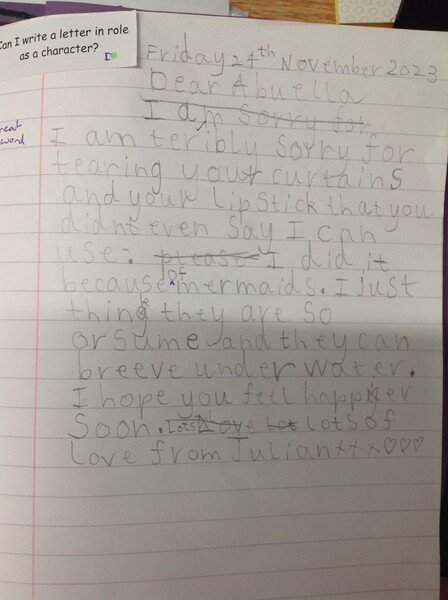 Can I write a letter in role
as a character?
Friday 24th November 2023
Dear Abuella
I am Sorry for
great
word
I am teribly Sorry for
tearing your curtains
and your LipStick that you
didnt even Say I can
use. please I did it
because of mermaids. I just
think they are so
orsume and they can
breeve under water.
I hope you feel happier
Soon. Lots Love Lot lots of
Love from Julian xxx♡♡♡